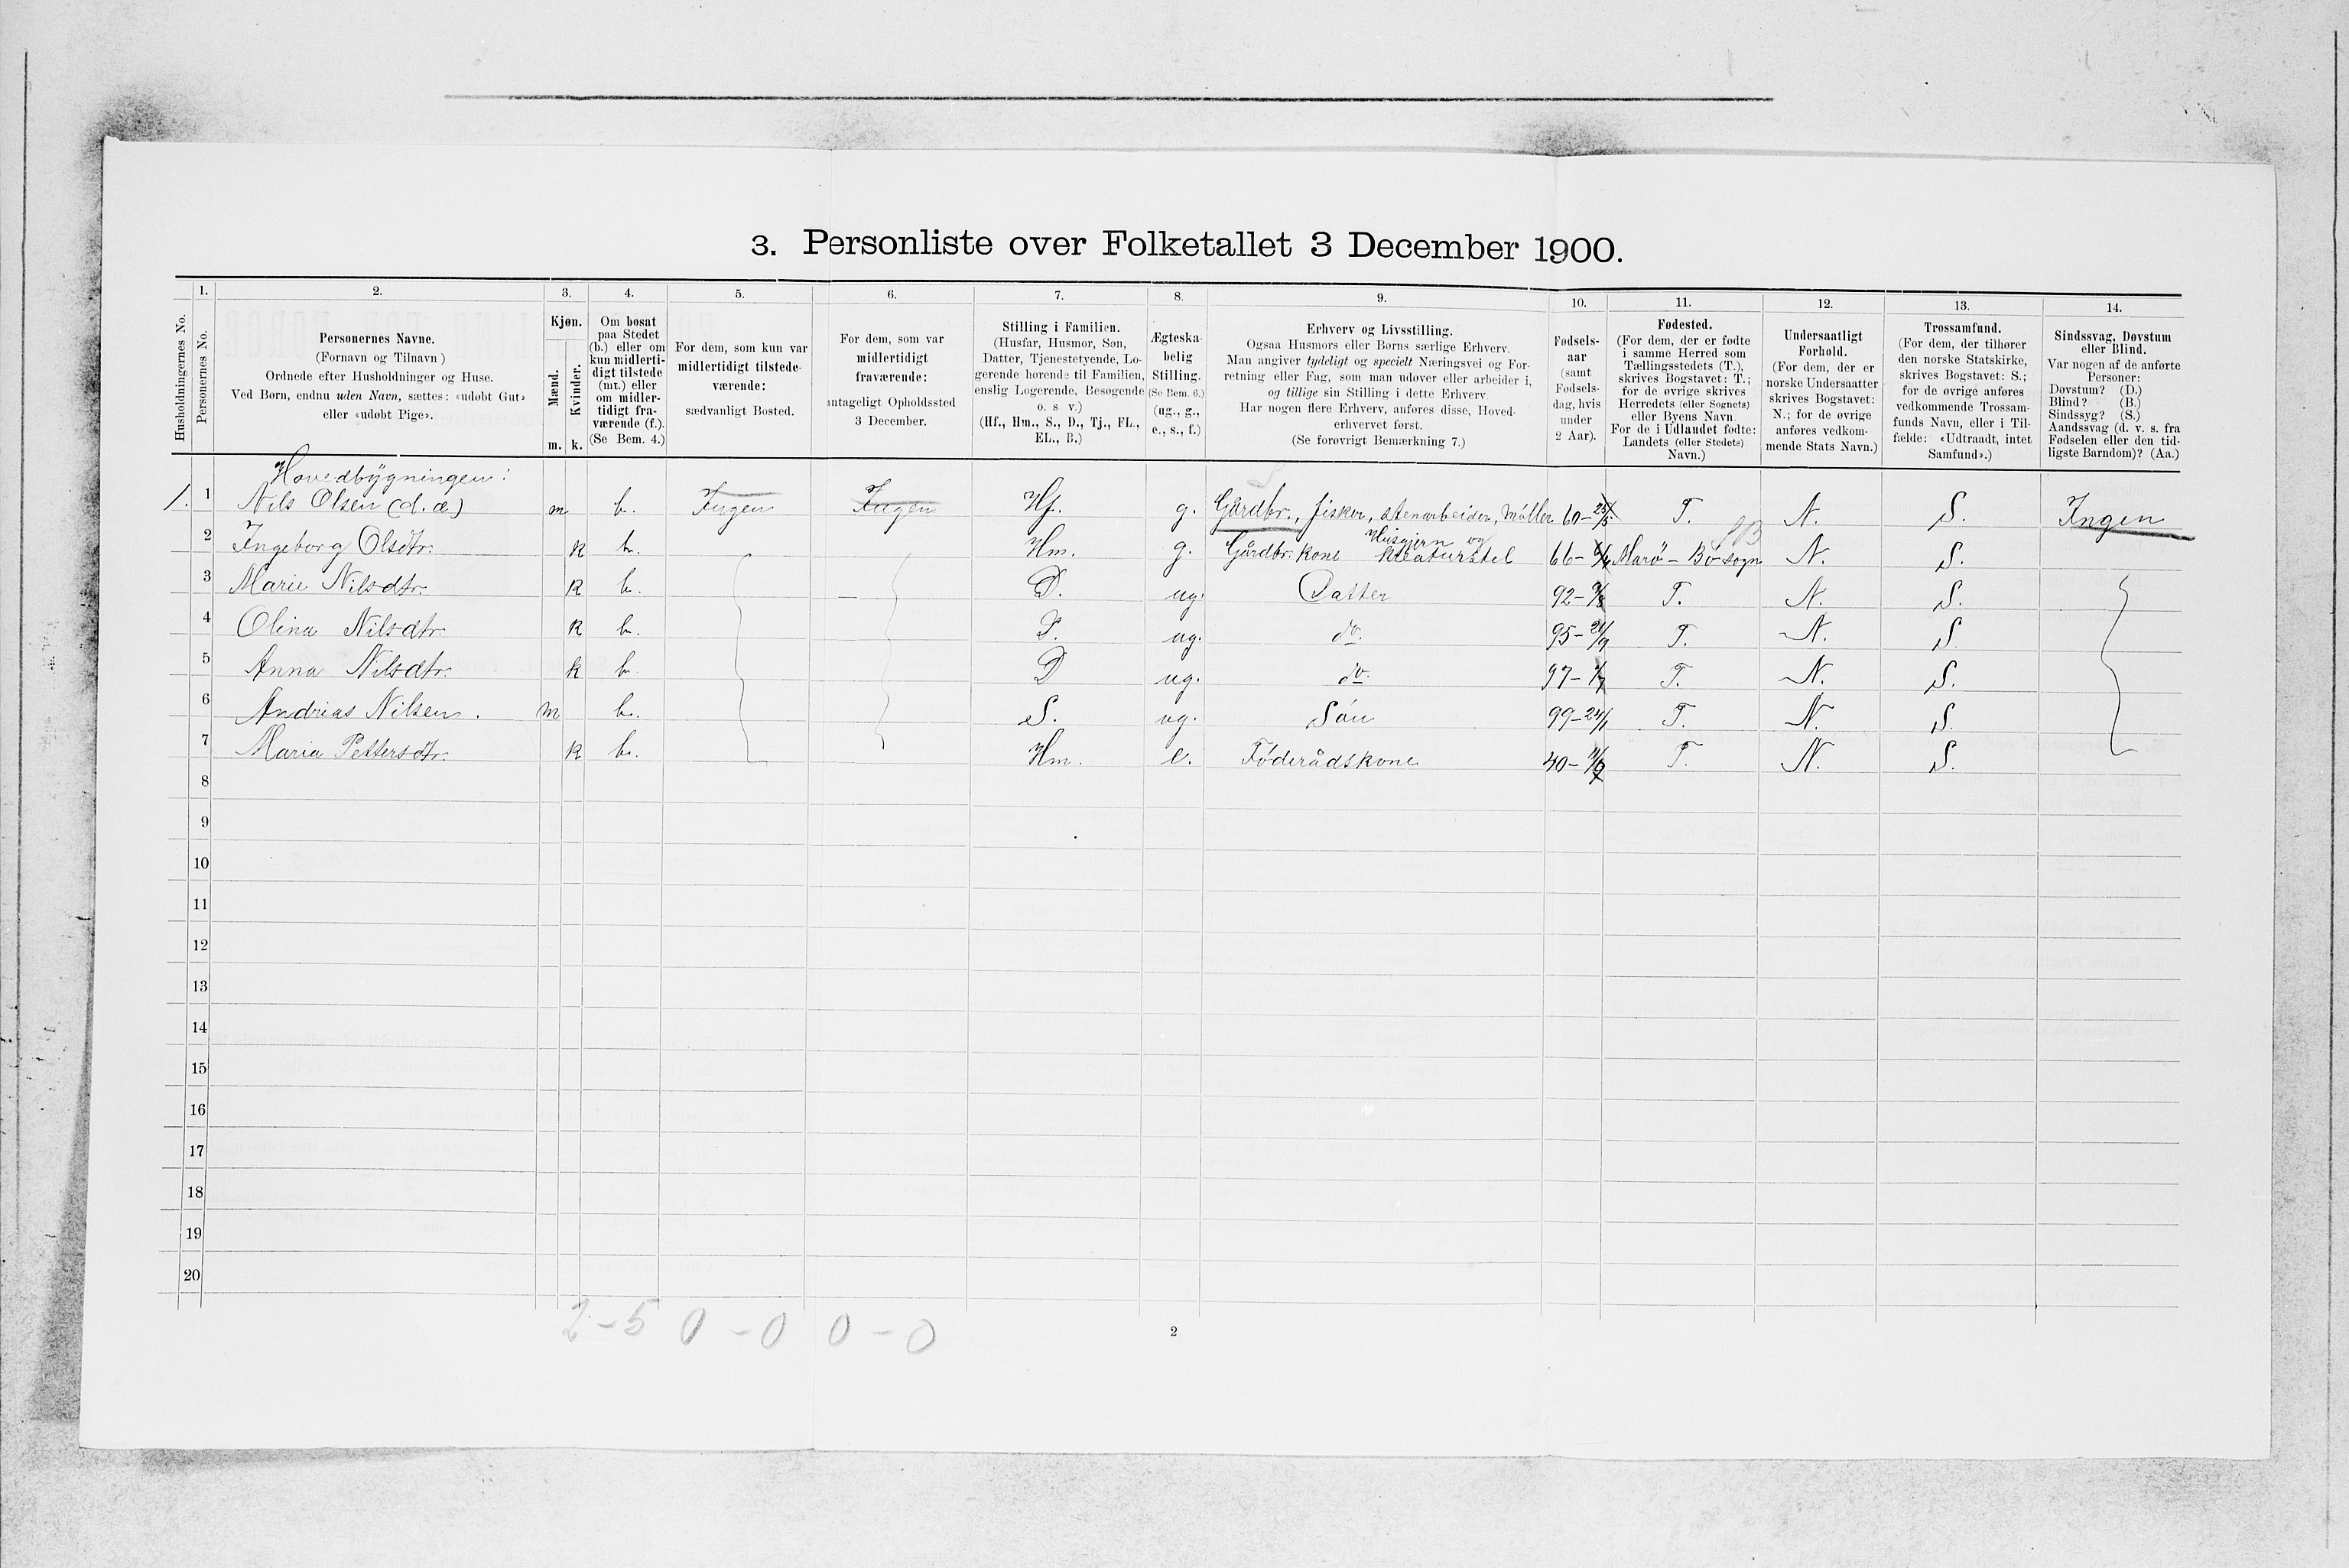 3. Personliste over Folketallet 3 December 1900.
1. 2. 3. 4. 5. 6. 7. 8. 9. 10. 11. 12. 13. 14.
Husholdningernes No.
Personernes No.
Personernes Navne.
(Fornavn og Tilnavn)
Ordnede efter Husholdninger og Huse.
Ved Børn, endnu uden Navn, sættes: «udøbt Gut»
eller «udøbt Pige».
Kjøn.
Mænd.
Kvinder.
m. k.
Om bosat
paa Stedet
(b.) eller om
kun midlerti-
digt tilstede
(mt.) eller
om midler-
tidigt fra-
værende (f.).
(Se Bem. 4.)
For dem, som kun var
midlertidigt tilstede-
værende:
sædvanligt Bosted.
For dem, som var
midlertidigt
fraværende:
antageligt Opholdssted
3 December.
Stilling i Familien.
(Husfar, Husmor, Søn,
Datter, Tjenestetyende, Lo-
gerende hørende til Familien,
enslig Logerende, Besøgende
o. s. v.)
(Hf., Hm., S., D., Tj., FL.,
EL., B.)
Ægteska-
belig
Stilling.
(Se Bem. 6.)
(ug., g.,
e., s., f.)
Erhverv og Livsstilling.
Ogsaa Husmors eller Børns særlige Erhverv.
Man angiver tydeligt og specielt Næringsvei og For-
retning eller Fag, som man udøver eller arbeider i,
og tillige sin Stilling i dette Erhverv
Har nogen flere Erhverv, anføres disse, Hoved-
erhvervet først.
(Se forøvrigt Bemærkning 7.)
Fødsels-
aar
(samt
Fødsels-
dag, hvis
under
2 Aar).
Fødested.
(For dem, der er fødte
i samme Herred som
Tællingsstedets (T.),
skrives Bogstavet: T.;
for de øvrige skrives
Herredets (eller Sognets)
eller Byens Navn
For de i Udlandet fødte:
Landets (eller Stedets)
Navn.)
Undersaatligt
Forhold.
(For dem, der er
norske Undersaatter
skrives Bogstavet:
N.; for de øvrige
anføres vedkom-
mende Stats Navn.)
Trossamfund.
(For dem, der tilhører
den norske Statskirke,
skrives Bogstavet: S.;
for de øvrige anføres
vedkommende Trossam-
funds Navn, eller i Til-
fælde: «Udtraadt, intet
Samfund».)
Sindssvag, Døvstum
eller Blind.
Var nogen af de anførte
Personer:
Døvstum? (D.)
Blind? (B.)
Sindssyg? (S.)
Aandssvag (d. v. s. fra
Fødselen eller den tid-
ligste Barndom)? (Aa.)
Hovedbygningen:
1. 1 Nils Olsen (d. æ) m b. Ingen Ingen Hf. g. Gårdbr., fisker, stenarbeider, møller 60-25/5 T. N. S. Ingen
Husgjern og
2 Ingeborg Olsdtr. k b. Hm. g. Gårdbr. kone kreaturstel 66- Marö - Bö sogn N. S.
3 Marie Nilsdtr. k b. D. ug. Datter 92- T. N. S.
4 Olina Nilsdtr. k b. D. ug. do. 95- T. N. S
5 Anna Nilsdtr. k b. D ug. do. 97- T. N. S.
6 Andrias Nilsen. m b. S. ug. Søn 99-24/1 T. N. S.
7 Maria Pettersdtr. k b. Hm. e. Föderådskone 40-11/9 T. N. S.
8
9
10
11
12
13
14
15
16
17
18
19
20
2-5 0-0 0-0
2